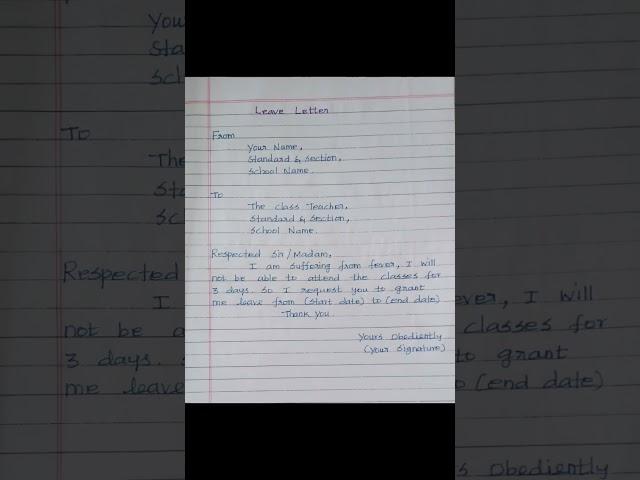 Leave Letter
From
Your Name,
Standard & Section,
School Name.
To
The Class Teacher,
Standard & Section,
School Name.
Respected Sir/Madam,
I am suffering from fever, I will
not be able to attend the classes for
3 days. So I request you to grant
me leave from (Start date) to (end date)
Thank you
Yours Obediently
(Your Signature)